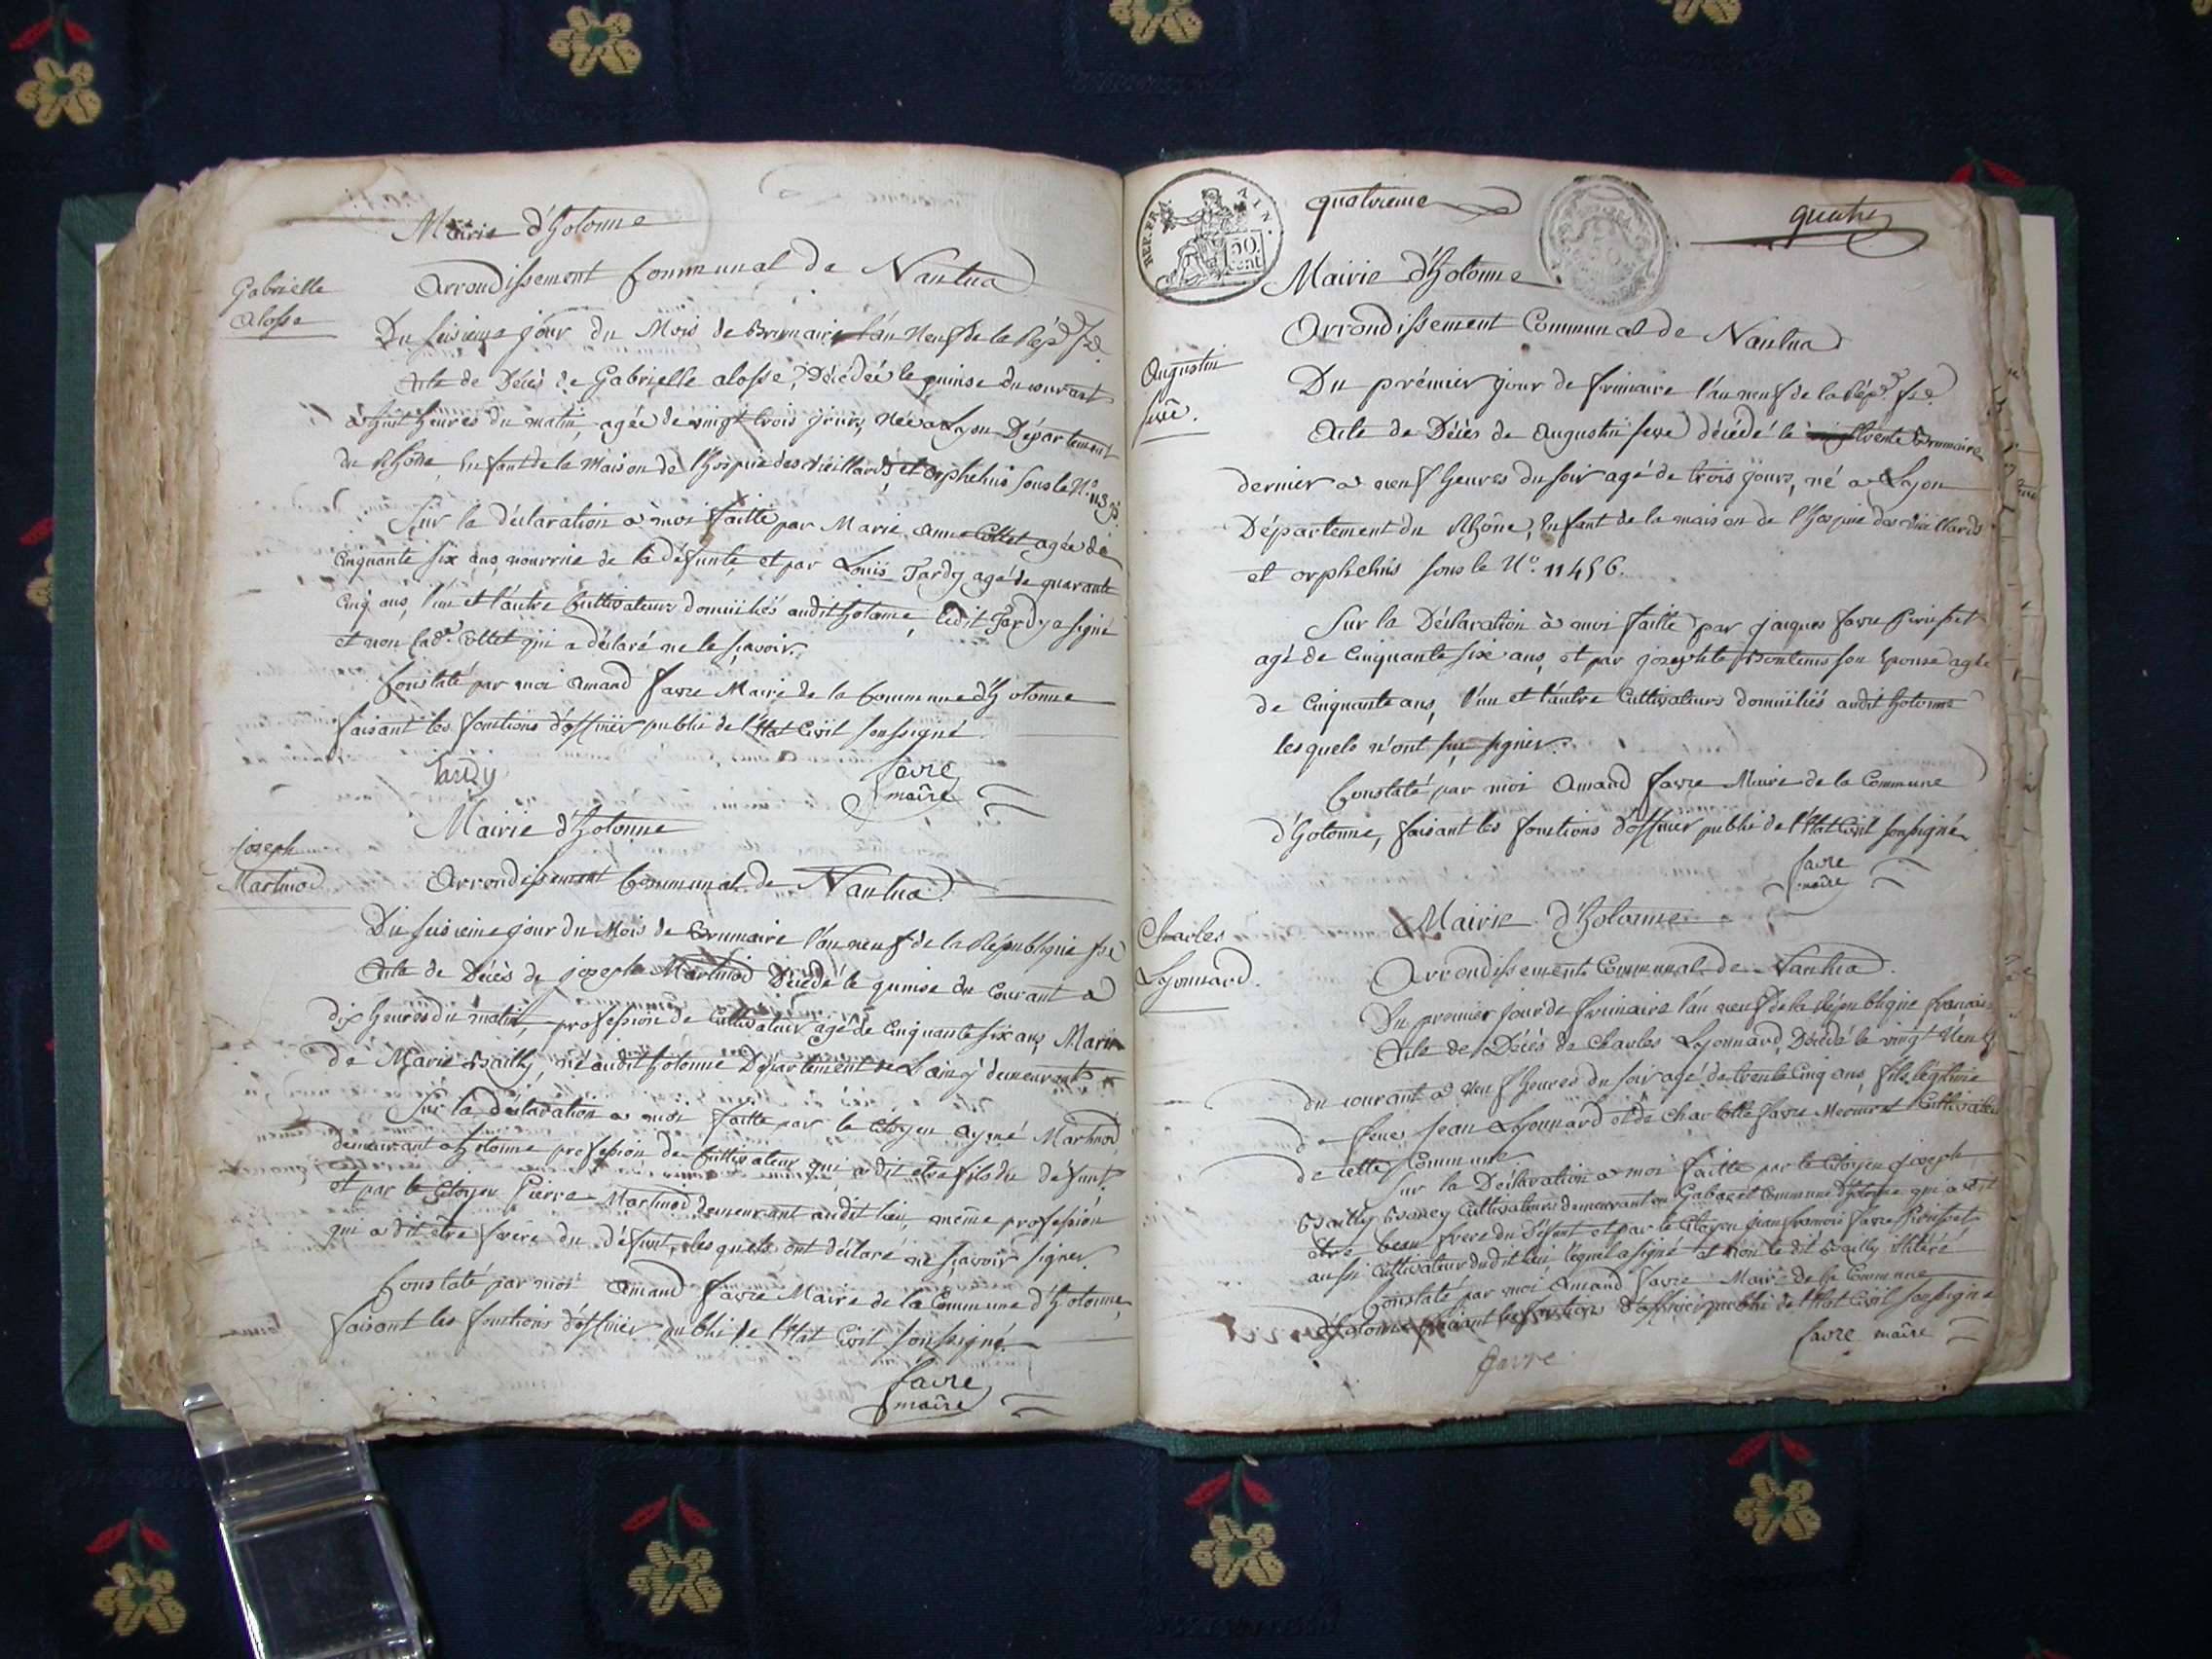 Mairie d'hotonne
Arrondissement Communal de Nantua
Gabrielle
alosse
Du seisieme jour du Mois de Brumaire l'an Neuf de la Rép. fse.
Acte de Décès de Gabrielle alosse, Décédée le quinse du courant
à huit heures du matin, agée de vingt trois jours, Née a Lyon Département
du Rhône, Enfant de la Maison de l'hospice des vieillards et orphelins sous le N.º
Sur la déclaration à moi faitte par Marie anne Collet agée de
Cinquante six ans, nourrice de la défunte, et par Louis Tardy agé de quarante
Cinq ans, l'un et l'autre Cultivateurs domiciliés audit hotonne, ledit Tardy a signé
et non lad.e Collet qui a déclaré ne le sçavoir.
Constaté par moi Amand favre Maire de la Commune d'hotonne
faisant les fonctions d'officier public de l'Etat Civil soussigné.
Tardy favre
maire
Mairie d'hotonne
joseph
Martinod
Arrondissement Communal de Nantua.
Du seisieme jour du Mois de Brumaire l'an neuf de la République fse
Acte de Décès de joseph Martinod Décédé le quinse du Courant a
dix heures du matin, profession de Cultivateur agé de Cinquante six ans, Mari
de Marie Bailly, né audit hotonne Département de Lain y demeurant
Sur la déclaration a moi faitte par le Citoyen aymé Martinod
demeurant a hotonne profession de Cultivateur qui a dit etre fils du défunt,
et par le Citoyen Pierre Martinod demeurant audit lieu, même profession
qui a dit être frère du défunt, lesquels ont déclaré ne sçavoir signer.
Constaté par moi Amand favre Maire de la Commune d'hotonne,
faisant les fonctions d'officier public de l'Etat Civil soussigné.
favre
maire
REP. FRA. AIN.
50
cent
quatrieme
quatre
Mairie d'hotonne
Arrondissement Communal de Nantua
Augustin
Du prémier jour de frimaire l'an neuf de la Rép. fse.
Acte de Décès de Augustin décédé le trente Brumaire
dernier a neuf heures du soir agé de trois jours, né a Lyon
Département du Rhône, Enfant de la maison de l'hospice des vieillards
et orphelins sous le N.º 11456.
Sur la Déclaration à moi faitte par jacques favre
agé de Cinquante six ans, et par josephte son Epouse agée
de Cinquante ans, l'un et l'autre Cultivateurs domiciliés audit hotonne
lesquels n'ont sçu signer.
Constaté par moi Amand favre Maire de la Commune
d'hotonne, faisant les fonctions d'officier public de l'Etat Civil soussigné
favre
maire
Mairie d'hotonne
Charles
Lyonnard.
Arrondissement Communal de Nantua.
Du premier jour de frimaire l'an neuf de la République francaise
Acte de Décès de Charles Lyonnard, Décédé le vingt Neuf
du courant a Neuf heures du soir agé de trente Cinq ans, fils légitime
de feus Jean Lyonnard et de Charlotte favre Cultivateur
de cette Commune
Sur la Déclaration a moi faitte par le Citoyen joseph
Bailly Cultivateurs demeurant en Commune d'hotonne qui a dit
être beau frere du Défunt et par le Citoyen jean francois favre
aussi Cultivateur dudit lieu, lequel a signé et non le dit Bailly illitéré
Constaté par moi Amand favre Maire de la Commune
d'hotonne faisant les fonctions d'officier public de l'Etat Civil soussigné
favre favre maire